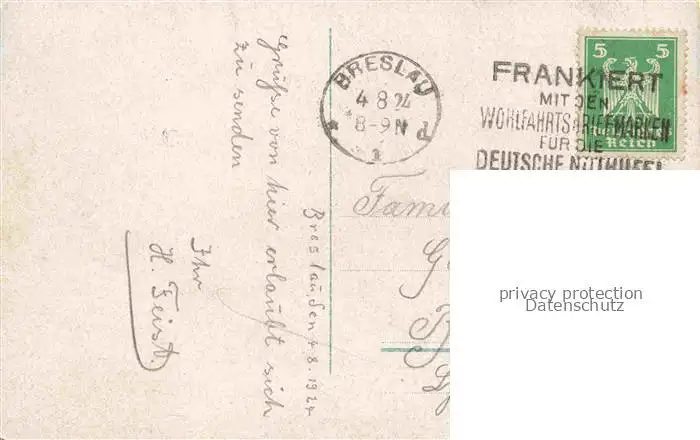 Breslau, den 4.8.1924
Grüße von hier erlaubt sich
zu senden
Ihr
H. Feist.
BRESLAU
4.8.24
*8-9N
* 1 d
FRANKIERT
MIT DEN
WOHLFAHRTSBRIEFMARKEN
FÜR DIE
DEUTSCHE NOTHILFE!
5 5
Reich
privacy protection
Datenschutz